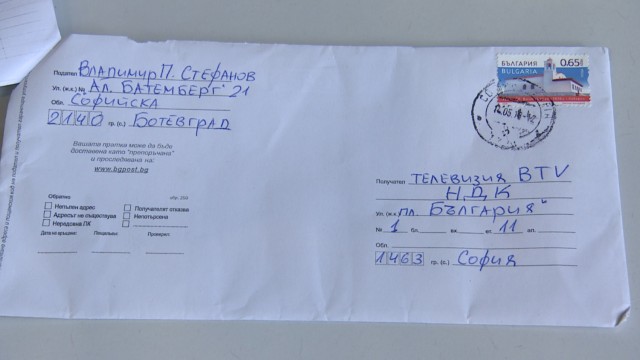 Подател Владимир П. Стефанов
Ул. (ж.к.) № Ал. Батемберг" 21
Обл. Софийска
2140 гр. (с.) Ботевград
Вашата пратка може да бъде
доставена като "препоръчана"
и проследявана на:
www.bgpost.bg
Обратно обр. 259
Непълен адрес
Получателят отказва
Адресът не съществува
Непотърсена
Нередовна ПК
Дата на връщане: Пощальон: Проверил:
БЪЛГАРИЯ 0.65
BULGARIA
Получател Телевизия BTV
НДК
Ул. (ж.к.) пл. България"
№ 1 бл. вх. ет. 11 ап.
Обл.
1463 гр. (с.) София